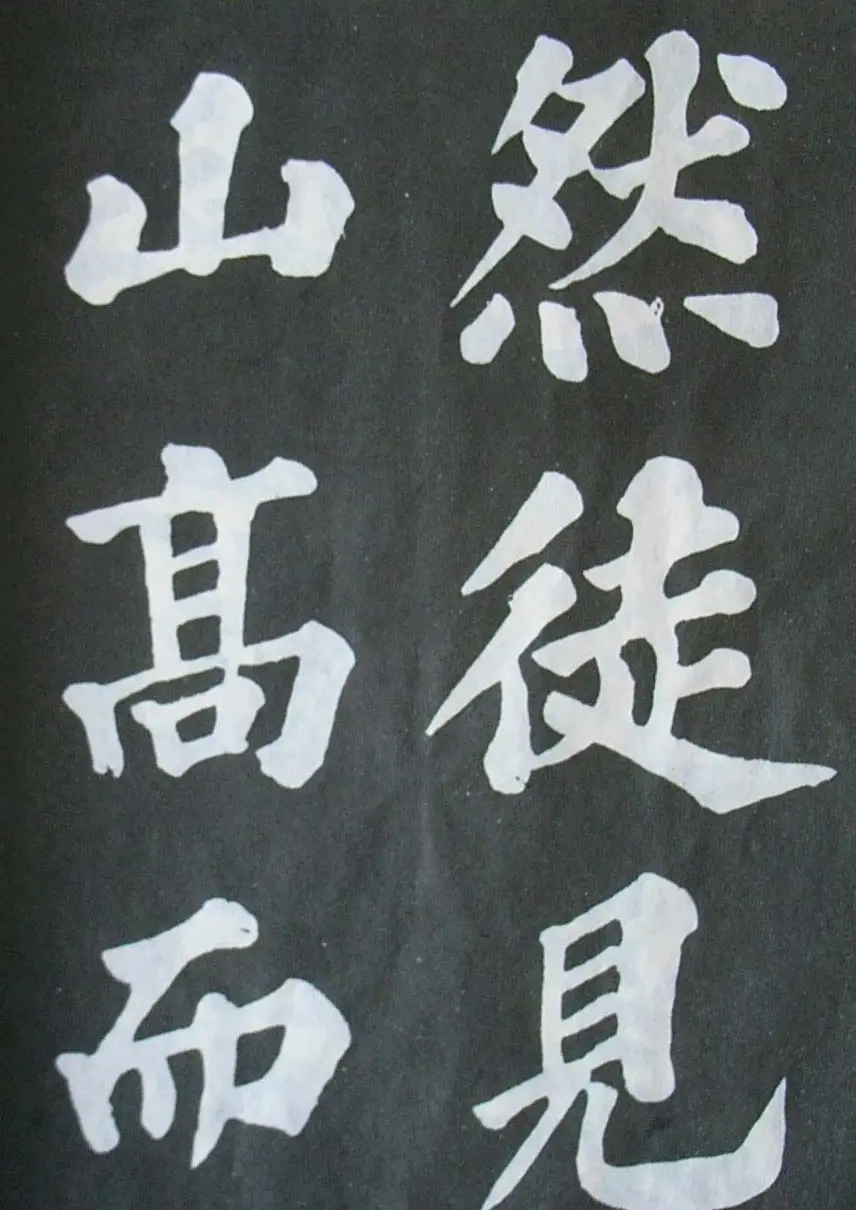 然徒見
山髙而